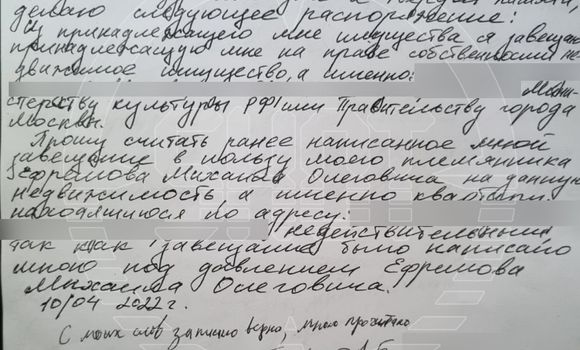 делаю следующее распоряжение:
Из принадлежащего мне имущества я завещаю
принадлежащую мне на праве собственности не
движимое имущество, а именно:
Мини-
стерству культуры РФ или Правительству города
Москвы.
Прошу считать ранее написанное мной
завещание в пользу моего племянника
Ефремова Михаила Олеговича на данную
недвижимость а именно квартиры
находящиюся по адресу:
недействительным
так как завещание было написано
мною под давлением Ефремова
Михаила Олеговича.
10/04 2022 г.
С моих слов записано верно, мною прочитано